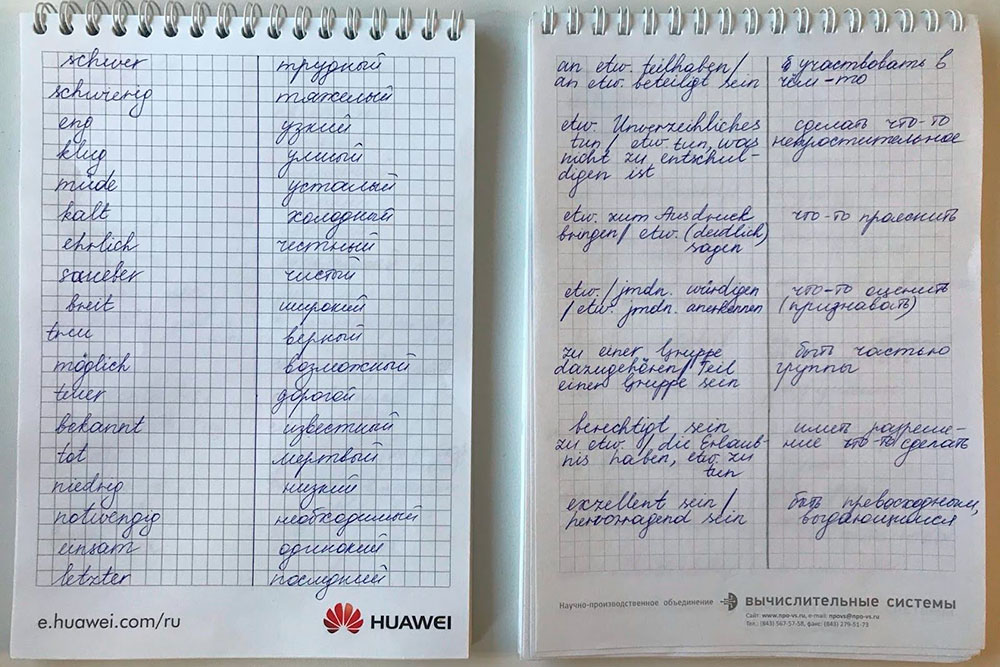 schwer трудный
schwierig тяжелый
eng узкий
klug умный
müde усталый
kalt холодный
ehrlich честный
sauber чистый
breit широкий
treu верный
möglich возможный
teuer дорогой
bekannt известный
tot мертвый
niedrig низкий
notwengig необходимый
einsam одинокий
letzter последный
e.huawei.com/ru
HUAWEI
an etw. teilhaben/ участвовать в
an etw. beteiligt sein чём-то
etw. Unverzeihliches сделать что-то
tun / etw tun, was непростительное
nicht zu entschul-
digen ist
etw. zum Ausdruck что-то прояснить
bringen/ etw. (deutlich)
sagen
etw./jmdn. würdigen что-то оценить
/etw. jmdn. anerkennen (признавать)
zu einer Gruppe быть частью
dazugehören/ Teil группы
einer Gruppe sein
berechtigt sein имет разреше-
zu etw. / die Erlaub- ние что-то сделать
nis haben, etw. zu
tun
exzellent sein/ быть превосходным,
hervorragend sein выдающимся
Научно-производственное объединение ВЫЧИСЛИТЕЛЬНЫЕ СИСТЕМЫ
Сайт: www.npo-vs.ru, e-mail: npovs@npo-vs.ru
Тел.: (843) 567-57-58, факс: (843) 279-51-73